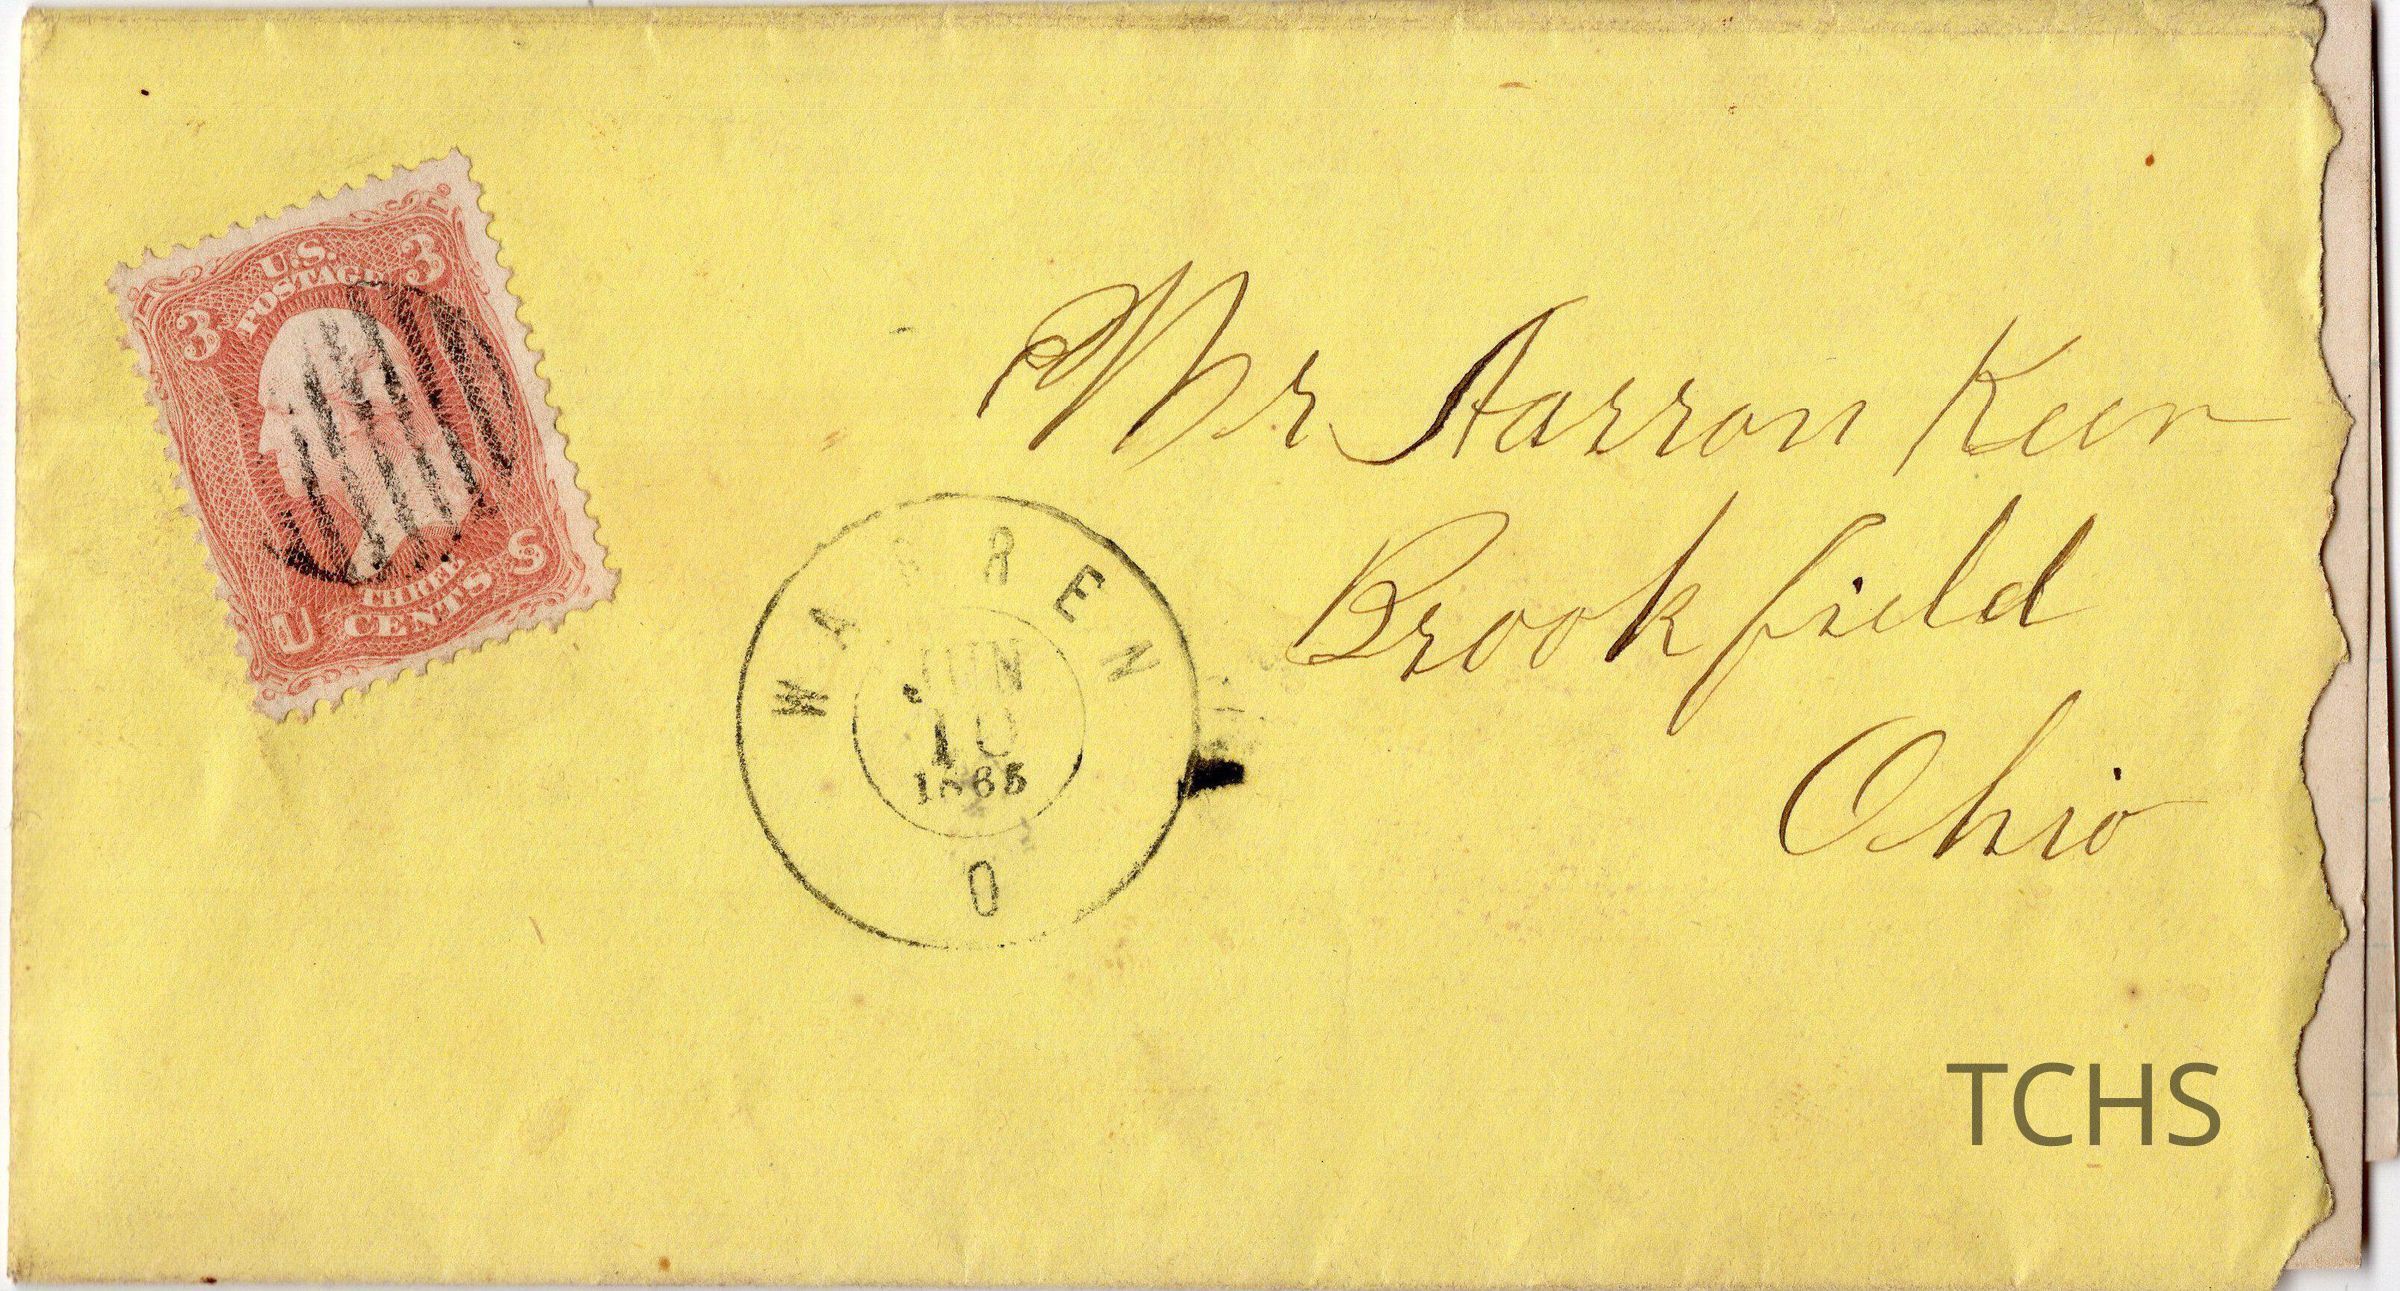 U.S.
POSTAGE
3 3
THREE
CENTS
U S
Mr Aarron Keer
Brookfield
Ohio
WARREN
JUN
10
1865
O
TCHS